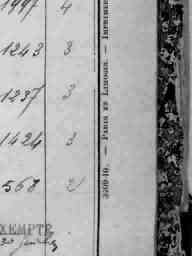 1997 4
1243 3
1237 3
1424 3
568 2
EXEMPTÉ
3209-10. — PARIS ET LIMOGES. — IMPRIMERIE